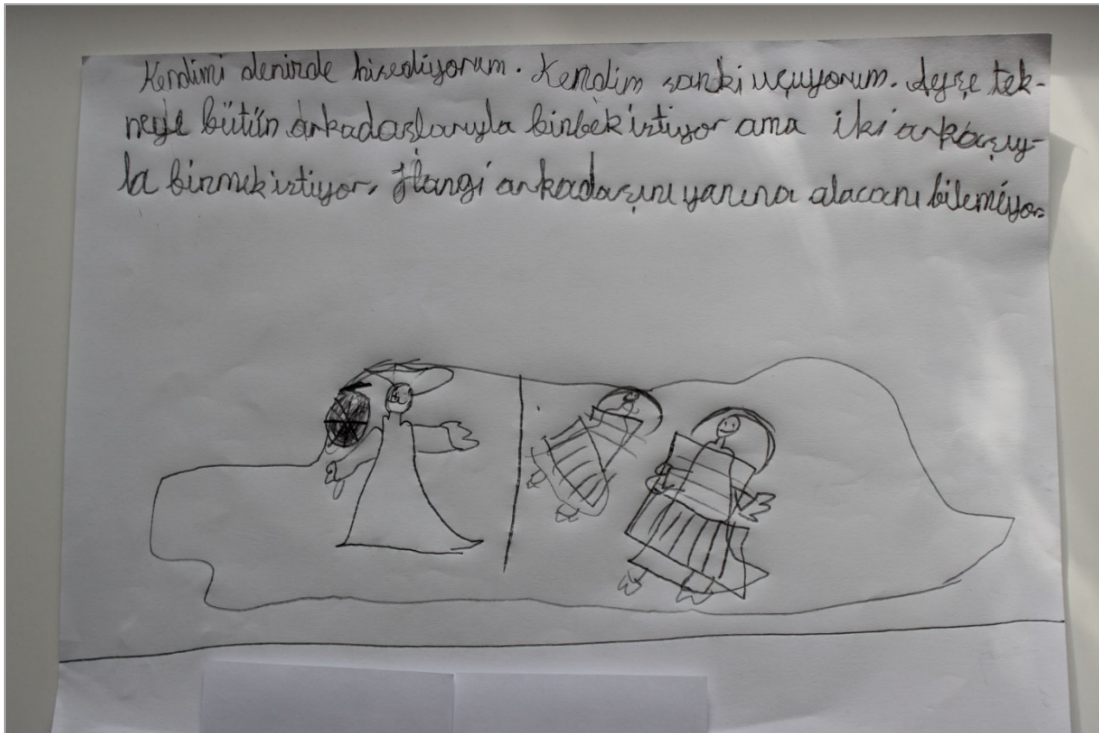 Kendimi denizde hisediyorum. Kendim sanki uçuyorum. Ayşe tek-
neyle bütün arkadaşlarıyla binbek istiyor ama iki arkaşıy-
la binmek istiyor. Hangi arkadaşını yanına alacanı bilemiyor.